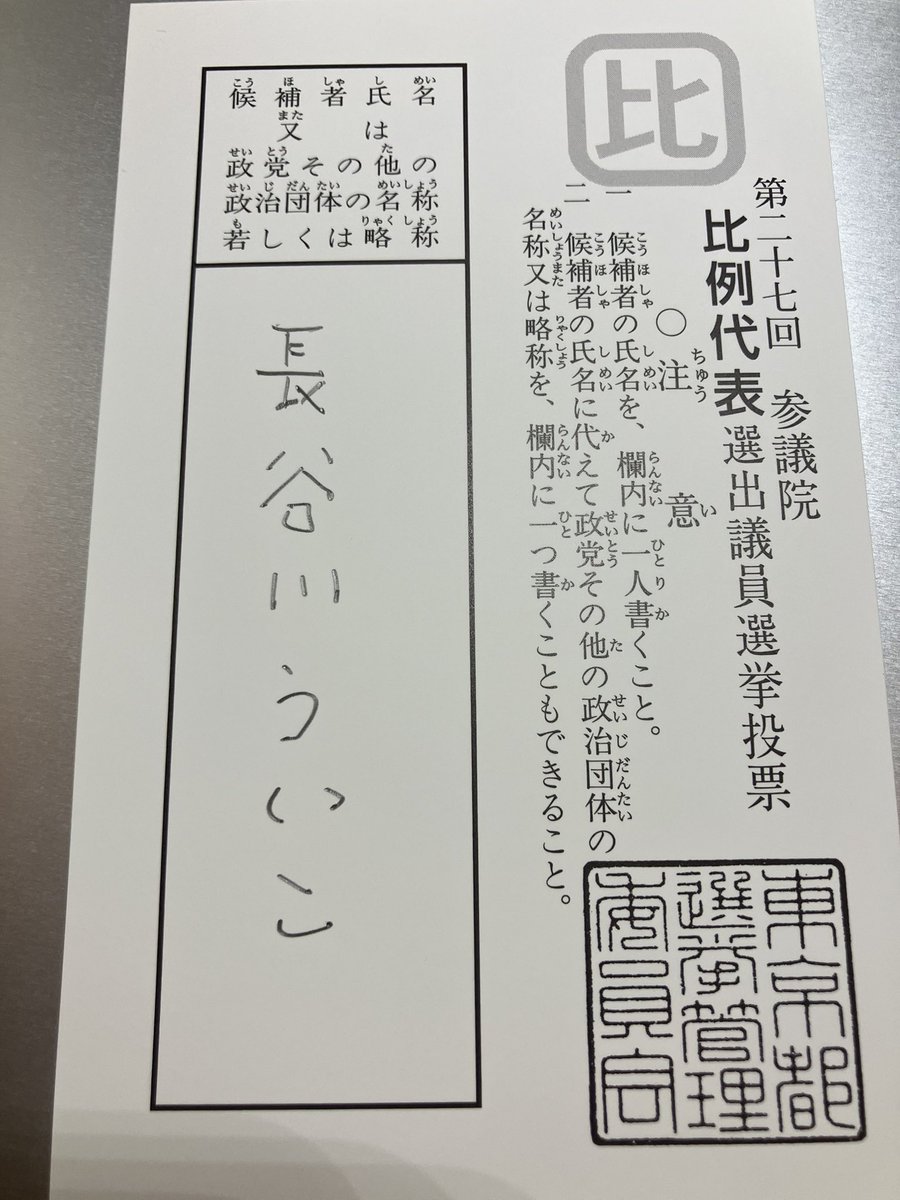 比
第二十七回 参議院
比例代表選出議員選挙投票
○注意
一 候補者の氏名を、欄内に一人書くこと。
二 候補者の氏名に代えて政党その他の政治団体の
名称又は略称を、欄内に一つ書くこともできること。
候補者氏名
又は
政党その他の
政治団体の名称
若しくは略称
長谷川ういこ
東京都
選挙管理
委員会